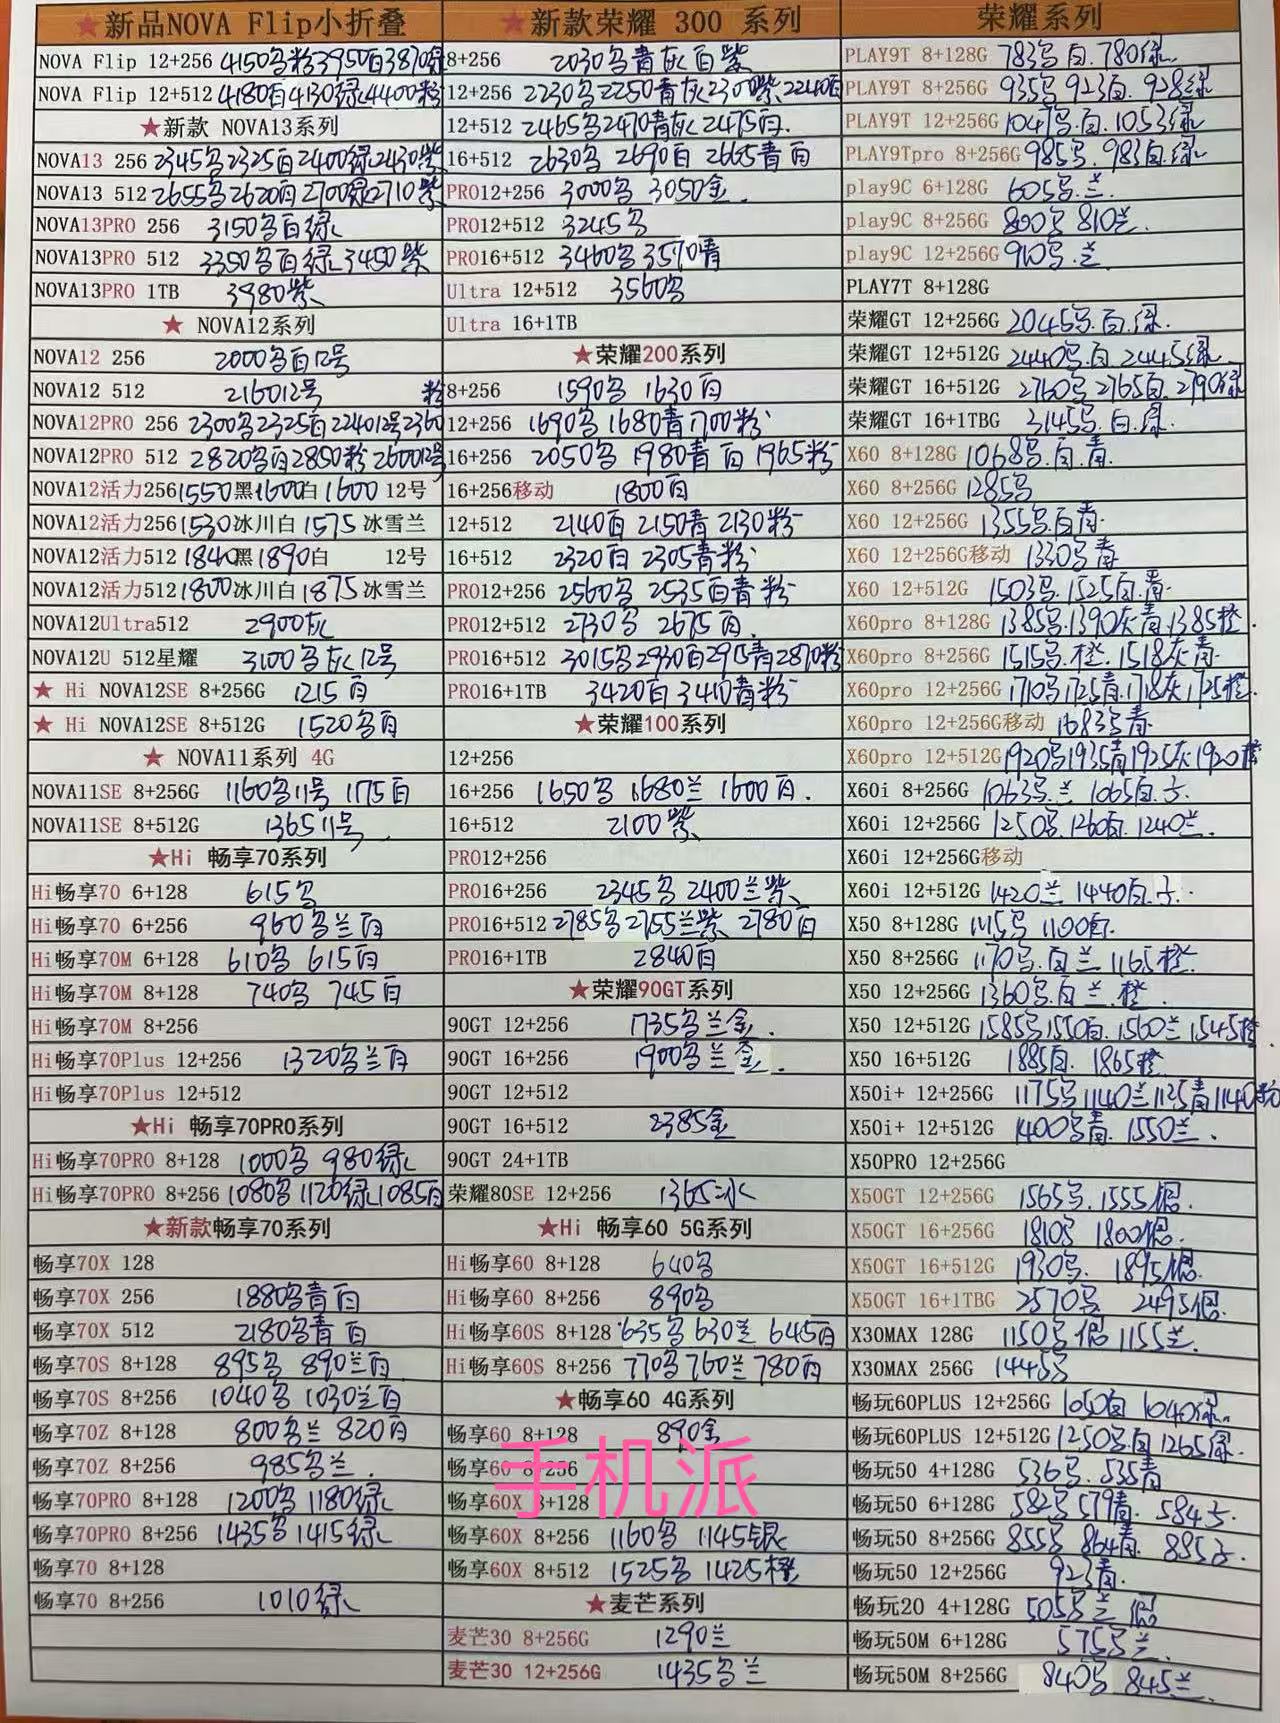 ★新品NOVA Flip小折叠
NOVA Flip 12+256 4150 粉3950白3870绿
NOVA Flip 12+512 4180白4130绿4400粉
★新款 NOVA13系列
NOVA13 256 2345 2325白2400绿2430紫
NOVA13 512 2655 2620白2700绿2710紫
NOVA13PRO 256 3150 白绿
NOVA13PRO 512 3350 白绿3450紫
NOVA13PRO 1TB 3980紫
★ NOVA12系列
NOVA12 256 2000 白12号
NOVA12 512 216012号 粉
NOVA12PRO 256 2300 2325白224012号2360
NOVA12PRO 512 2820 白2850粉260012号
NOVA12活力256 1550黑1600白1600 12号
NOVA12活力256 1530冰川白1575冰雪兰
NOVA12活力512 1840黑1890白 12号
NOVA12活力512 1800冰川白1875冰雪兰
NOVA12Ultra512 2900灰
NOVA12U 512星耀 3100 灰12号
★ Hi NOVA12SE 8+256G 1215白
★ Hi NOVA12SE 8+512G 1520 白
★ NOVA11系列 4G
NOVA11SE 8+256G 1160 11号 1175白
NOVA11SE 8+512G 1365 11号
★Hi 畅享70系列
Hi畅享70 6+128 615
Hi畅享70 6+256 960 兰白
Hi畅享70M 6+128 610 615白
Hi畅享70M 8+128 740 745白
Hi畅享70M 8+256
Hi畅享70Plus 12+256 1320 兰白
Hi畅享70Plus 12+512
★Hi 畅享70PRO系列
Hi畅享70PRO 8+128 1000 980绿
Hi畅享70PRO 8+256 1080 1120绿1085白
★新款畅享70系列
畅享70X 128
畅享70X 256 1880 青白
畅享70X 512 2180 青白
畅享70S 8+128 895 890兰白
畅享70S 8+256 1040 1030兰白
畅享70Z 8+128 800 兰 820白
畅享70Z 8+256 985 兰.
畅享70PRO 8+128 1200 1180绿
畅享70PRO 8+256 1435 1415绿
畅享70 8+128
畅享70 8+256 1010绿
★新款荣耀 300 系列
8+256 2030 青灰白紫
12+256 2230 2250青灰2300紫2240白
12+512 2465 2470青灰2475白.
16+512 2630 2690白 2665青白
PRO12+256 3000 3050金.
PRO12+512 3245
PRO16+512 3460 3570青
Ultra 12+512 3560
Ultra 16+1TB
★荣耀200系列
8+256 1590 1630白
12+256 1690 1680青1700粉
16+256 2050 1980青白1965粉
16+256移动 1800白
12+512 2140白2150青2130粉
16+512 2320白2305青粉
PRO12+256 2560 2535白青粉
PRO12+512 2730 2675白.
PRO16+512 3015 2930白2915青2870粉
PRO16+1TB 3420白3410青粉
★荣耀100系列
12+256
16+256 1650 1680兰1600白.
16+512 2100紫
PRO12+256
PRO16+256 2345 2400兰紫
PRO16+512 2785 2755兰紫 2780白
PRO16+1TB 2840白
★荣耀90GT系列
90GT 12+256 1735 兰金.
90GT 16+256 1900 兰金.
90GT 12+512
90GT 16+512 2385金
90GT 24+1TB
荣耀80SE 12+256 1365冰
★Hi 畅享60 5G系列
Hi畅享60 8+128 640
Hi畅享60 8+256 890
Hi畅享60S 8+128 635 630兰 645白
Hi畅享60S 8+256 770 760兰780白
★畅享60 4G系列
畅享60 8+128 890金
畅享60 8+256
畅享60X 8+128
畅享60X 8+256 1160 1145银
畅享60X 8+512 1525 1425橙
★麦芒系列
麦芒30 8+256G 1290兰
麦芒30 12+256G 1435 兰
荣耀系列
PLAY9T 8+128G 783 白.780绿
PLAY9T 8+256G 935 923白.928绿
PLAY9T 12+256G 1047 白.1053绿
PLAY9Tpro 8+256G 985 .983白.绿
play9C 6+128G 605 .兰.
play9C 8+256G 800 810兰
play9C 12+256G 910 .兰
PLAY7T 8+128G
荣耀GT 12+256G 2045 .白.绿.
荣耀GT 12+512G 2440 .白 2445绿
荣耀GT 16+512G 2760 2765白.2790绿
荣耀GT 16+1TBG 3145 .白.绿.
X60 8+128G 1068 .白.青.
X60 8+256G 1285
X60 12+256G 1355 .白青.
X60 12+256G移动 1330 青
X60 12+512G 1503 .1525白.青.
X60pro 8+128G 1385 .1390灰青.1385橙.
X60pro 8+256G 1515 .橙.1518灰青.
X60pro 12+256G 1710 1725青.1718灰1725橙.
X60pro 12+256G移动 1683 青.
X60pro 12+512G 1920 1935青1925灰1920橙
X60i 8+256G 1063 .兰1065白.
X60i 12+256G 1250 .1260白.1240兰.
X60i 12+256G移动
X60i 12+512G 1420兰 1440白.
X50 8+128G 1115 1100白.
X50 8+256G 1170 .白兰 1165橙.
X50 12+256G 1360 .白兰.橙.
X50 12+512G 1585 1550白.1560兰1545橙.
X50 16+512G 1885白.1865橙.
X50i+ 12+256G 1175 1140兰1125青1140粉
X50i+ 12+512G 1400 青.1550兰.
X50PRO 12+256G
X50GT 12+256G 1565 .1555银.
X50GT 16+256G 1810 1800银.
X50GT 16+512G 1930 . 1895银.
X50GT 16+1TBG 2570 2495银.
X30MAX 128G 1150 银1155兰.
X30MAX 256G 1445
畅玩60PLUS 12+256G 1050白 1040绿.
畅玩60PLUS 12+512G 1250 白1265绿.
畅玩50 4+128G 536 .535青
畅玩50 6+128G 582 579青. 584
畅玩50 8+256G 855 864青. 885
畅玩50 12+256G 923青.
畅玩20 4+128G 505 兰 银
畅玩50M 6+128G 575 兰.
畅玩50M 8+256G 840 845兰.
手机派